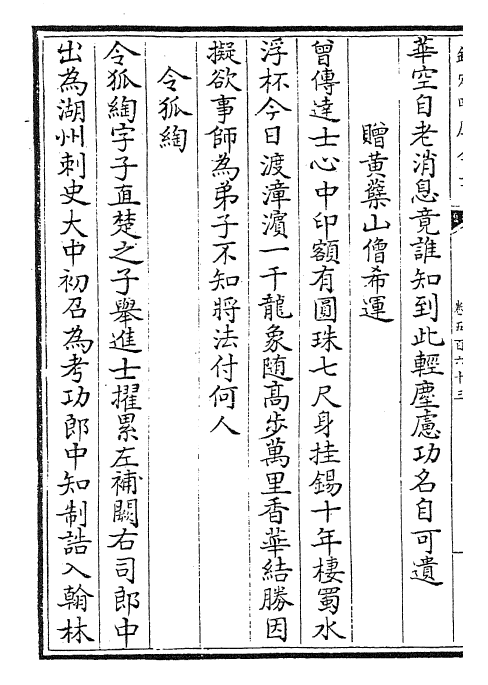 華空自老消息竟誰知到此輕塵慮功名自可遺
贈黃蘗山僧希運
曾傳達士心中印額有圓珠七尺身挂錫十年棲蜀水
浮杯今日渡漳濱一千龍象隨髙步萬里香華結勝因
擬欲事師為弟子不知將法付何人
令狐綯
令狐綯字子直楚之子舉進士擢累左補闕右司郎中
出為湖州刺史大中初召為考功郎中知制誥入翰林
卷五百六十三